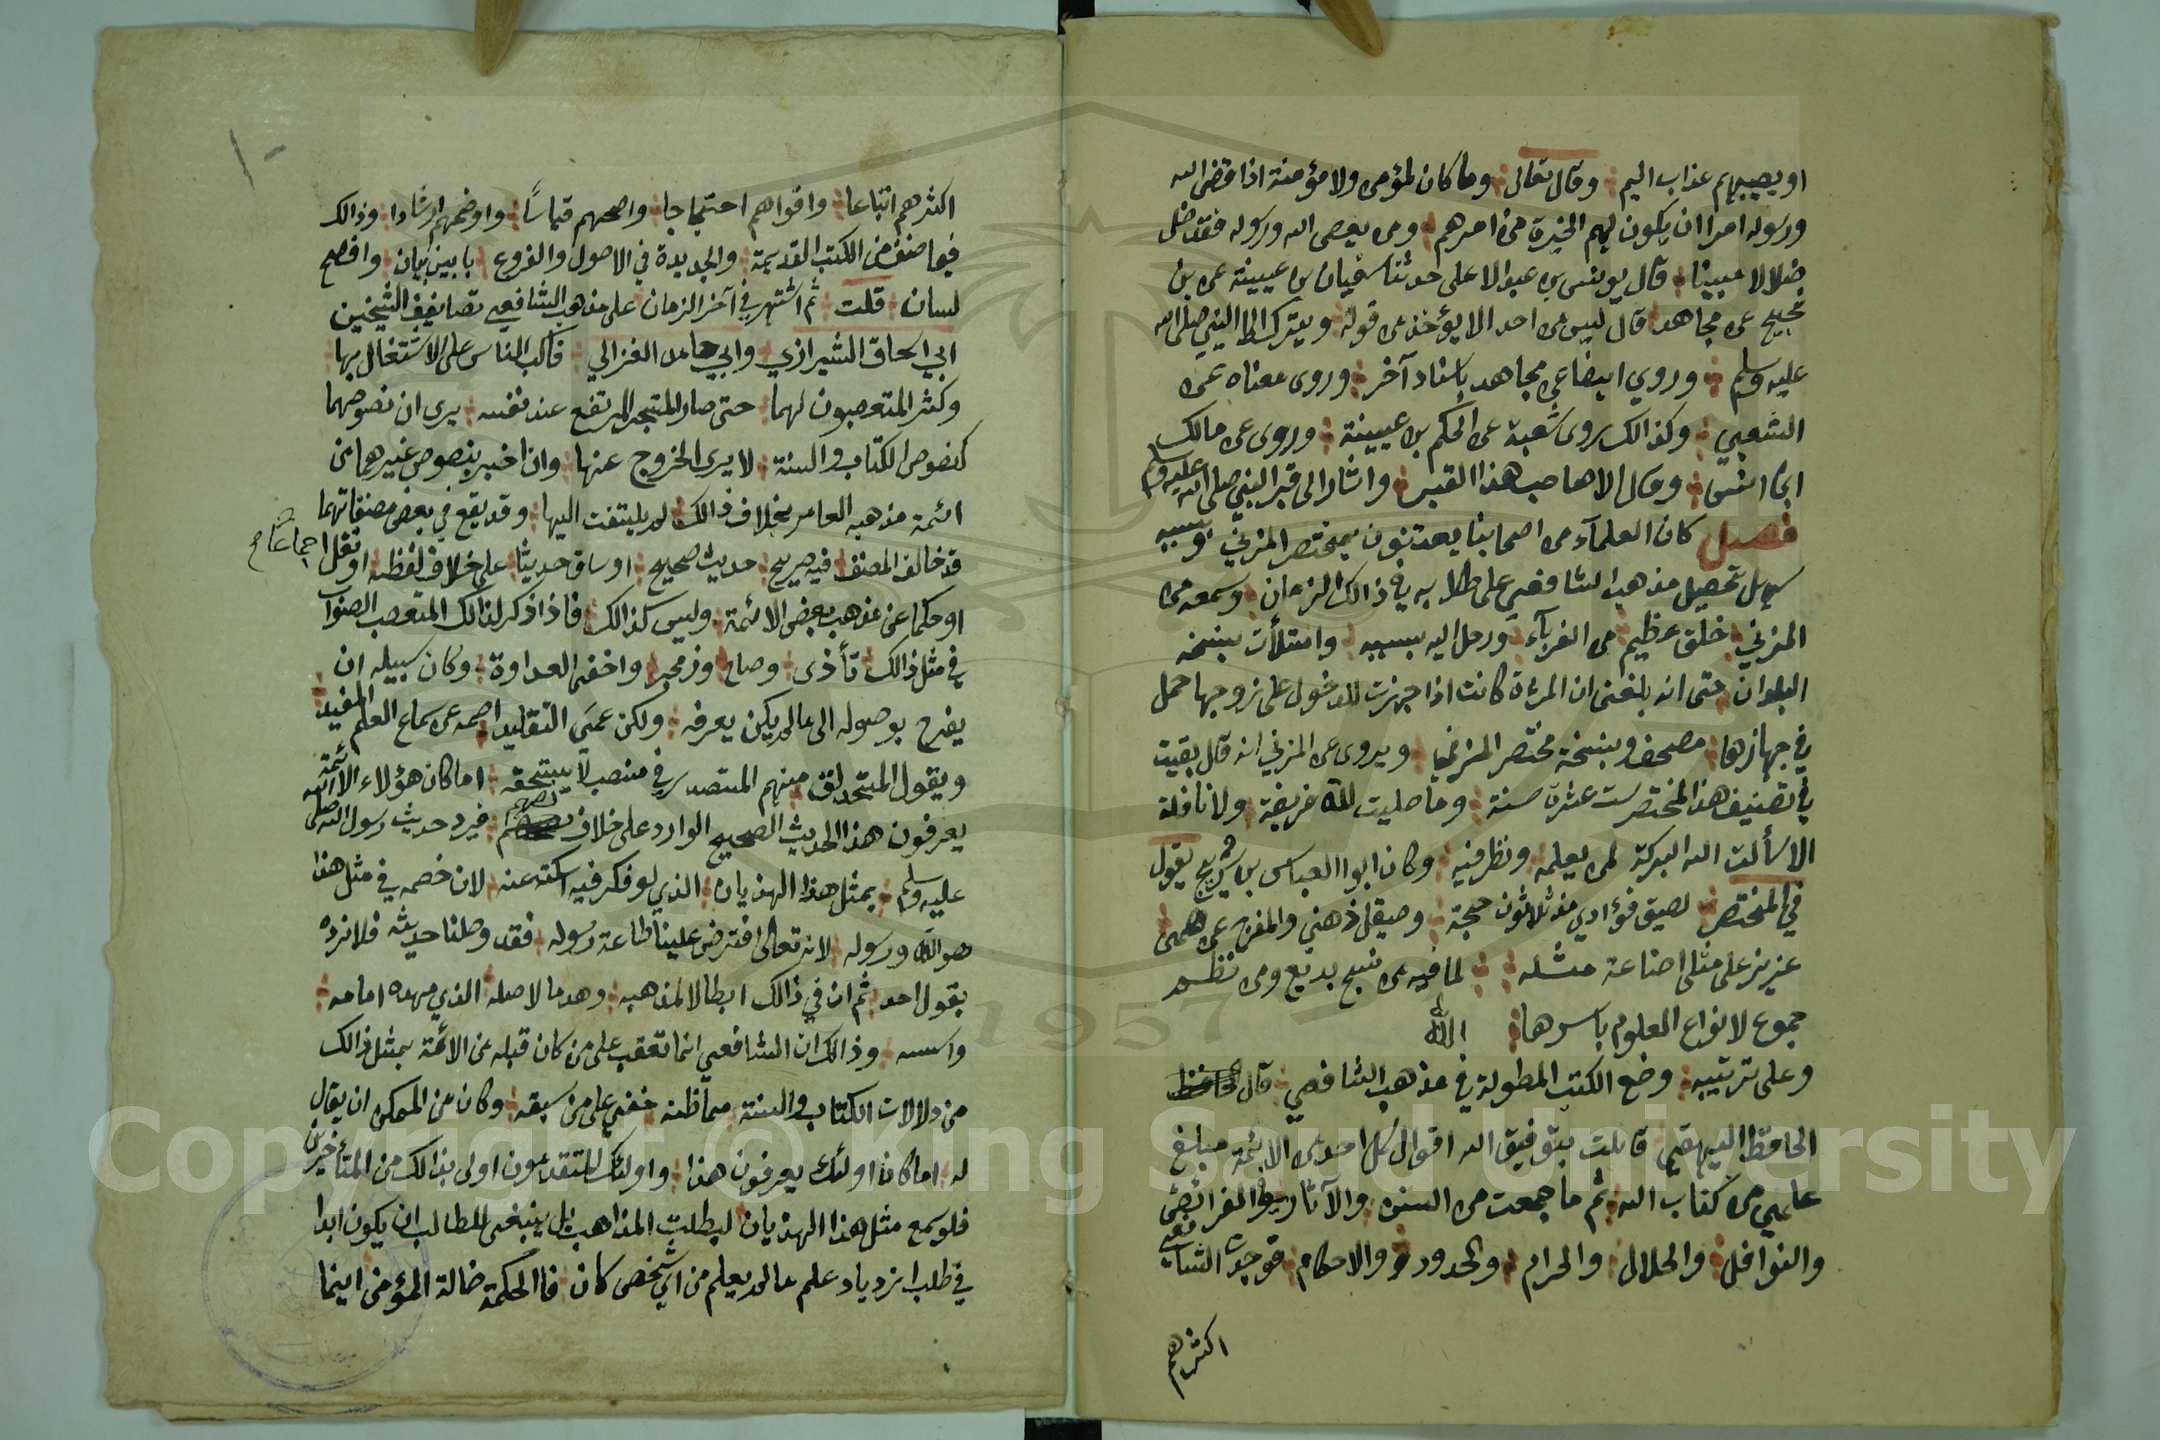 او يصيبهم عذاب اليم وقال تعالى وما كان لمؤمن ولا مؤمنة اذا قضى الله
ورسوله امرا ان يكون لهم الخيرة من امرهم ومن يعصى الله ورسوله فقد ضل
ضلالا مبينا قال يونس بن عبد الاعلى حدثنا سفيان بن عيينة عن بن
نجيح عن مجاهد قال ليس من احد الا يؤخذ من قوله ويترك الا النبي صلى الله
عليه وسلم وروي ايضا عن مجاهد باسناد آخر وروى معناه عن
الشعبي وكذالك روى شعبة عن الحكم بن عيينة وروى عن مالك
ابن انس وقال الا صاحب هذا القبر واشار الى قبر النبي صلى الله عليه وسلم
فصل كان العلمآء من اصحابنا يعتنون بمختصر المزني وبسببه
سهل تحصيل مذهب الشافعي على طلابه في ذالك الزمان وسمعه من
المزني خلق عظيم من الغربآء ورحل اليه بسببه وامتلأت بنسخه
البلدان حتى انه بلغنى ان المرءة كانت اذا جهزت للدخول على زوجها حمل
في جهازها مصحف ونسخة مختصر المزني ويروى عن المزني انه قال بقيت
في تصنيف هذا المختصر ست عشرة سنة وما صليت لله فريضة ولا نافلة
الا سألت الله البركة لمن يعلمه ونظر فيه وكان ابوا العباس بن سريج يقول
في المختصر لصيق فؤادي منذ ثلاثون حجة وصيقل ذهني والمفرج عن همى
عزيز على مثلى اضاعة مثله لما فيه من نسج بديع ومن نظم
جموع لانواع العلوم باسرها الله
وعلى ترتيبه وضع الكتب المطولة في مذهب الشافعي قال
الحافظ البيهقي قابلت بتوفيق الله اقوال كل احد من الائمة مبلغ
علمي من كتاب الله ثم ما جمعت من السنن والآثار في الفرائض
والنوافل والحلال والحرام والحدود والاحكام فوجدت الشافعي
اكثرهم
اكثرهم اتباعا واقواهم احتجاجا واصحهم قياسًا واوضحهم ارشادا وذالك
فيما صنف من الكتب القديمة والجديدة في الاصول والفروع بابين بيان وافصح
لسان قلت ثم اشتهر في آخر الزمان على مذهب الشافعي تصانيف الشيخين
ابي اسحاق الشيرازي وابي حامد الغزالي فاكب الناس على الاشتغال بها
وكثر المتعصبون لهما حتى صار المتبحر المرتفع عند نفسه يرى ان نصوصهما
كنصوص الكتاب والسنة لا يرى الخروج عنها وان اخبر بنصوص غيرهما من
ائمة مذهبه العامر بخلاف ذالك لم يلتفت اليها وقد يقع في بعض مصنفاتهما
قد خالف المصنف فيه صريح حديث صحيح او ساق حديثا على خلاف لفظه او نقل اجماعا
او حكما عن مذهب بعض الائمة وليس كذالك فاذا ذكر لذالك المتعصب الصواب
في مثل ذالك تأذى وصاح وزمجر واخفى العداوة وكان سبيله ان
يفرح بوصوله الى عالم يكن يعرفه ولكن عمي التقليد اصمه عن سماع العلم المفيد
ويقول المتحذلق منهم المتصدر في منصب لا يستحقه اما كان هؤلاء الائمة
يعرفون هذا الحديث الصحيح الوارد على خلاف نصهم فيرد حديث رسول الله صلى الله
عليه وسلم بمثل هذا الهذيان الذي لو فكر فيه اسكته عنه لان خصمه في مثل هذا
هو الله ورسوله لانه تعالى افترض علينا طاعة رسوله فقد وصلنا حديثه فلا نرده
بقول احد ثم ان في ذالك ابطالا لمذهبه وهدما لاصله الذي مهده امامه
واسسه وذالك ان الشافعي انما تعقب على من كان قبله من الائمة بمثل ذالك
من دلالات الكتاب والسنة مما ظنه خفي على من سبقه وكان من الممكن ان يقال
له اما كان اولئك يعرفون هذا واولئك المتقدمون اولى بذالك من المتأخرين
فلو سمع مثل هذا الهذيان لبطلت المذاهب بل ينبغى للطالب ان يكون ابدا
في طلب ازدياد علم ما لم يعلم من اي شخص كان فالحكمة ضالة المؤمن اينما
1957
Copyright © King Saud University